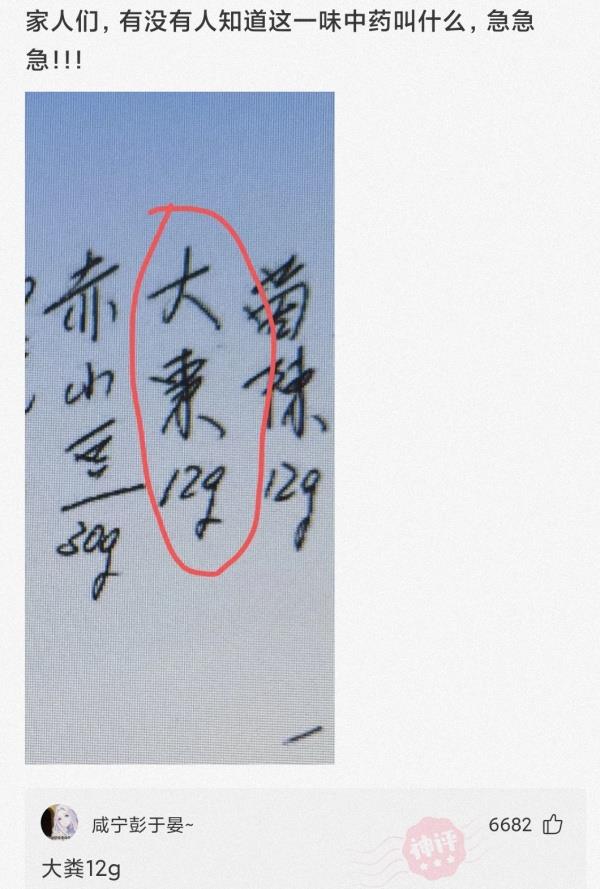 家人们，有没有人知道这一味中药叫什么，急急
急!!!
赤小豆
30g
大枣
12g
12g
咸宁彭于晏~
6682
神评
大粪12g